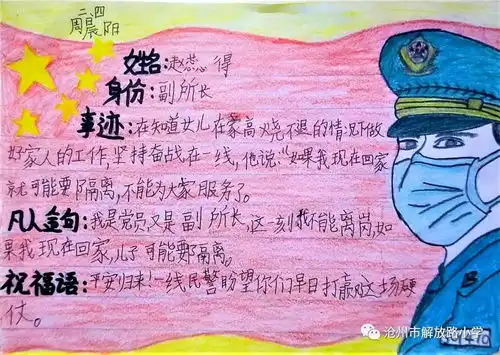 二四
周晨阳
姓名:赵蕊得
身份:副所长
事迹:在知道女儿在家高烧不退的情况下做
好家人的工作,坚持奋战在一线,他说:“如果我现在回家
就可能要隔离,不能为大家服务了。
凡人金句:我是党员又是副所长,这一刻我不能离岗,如
果我现在回家,儿子可能要隔离。
祝福语:平安归来!一线民警盼望你们早日打赢这场硬
仗。
沧州市解放路小学